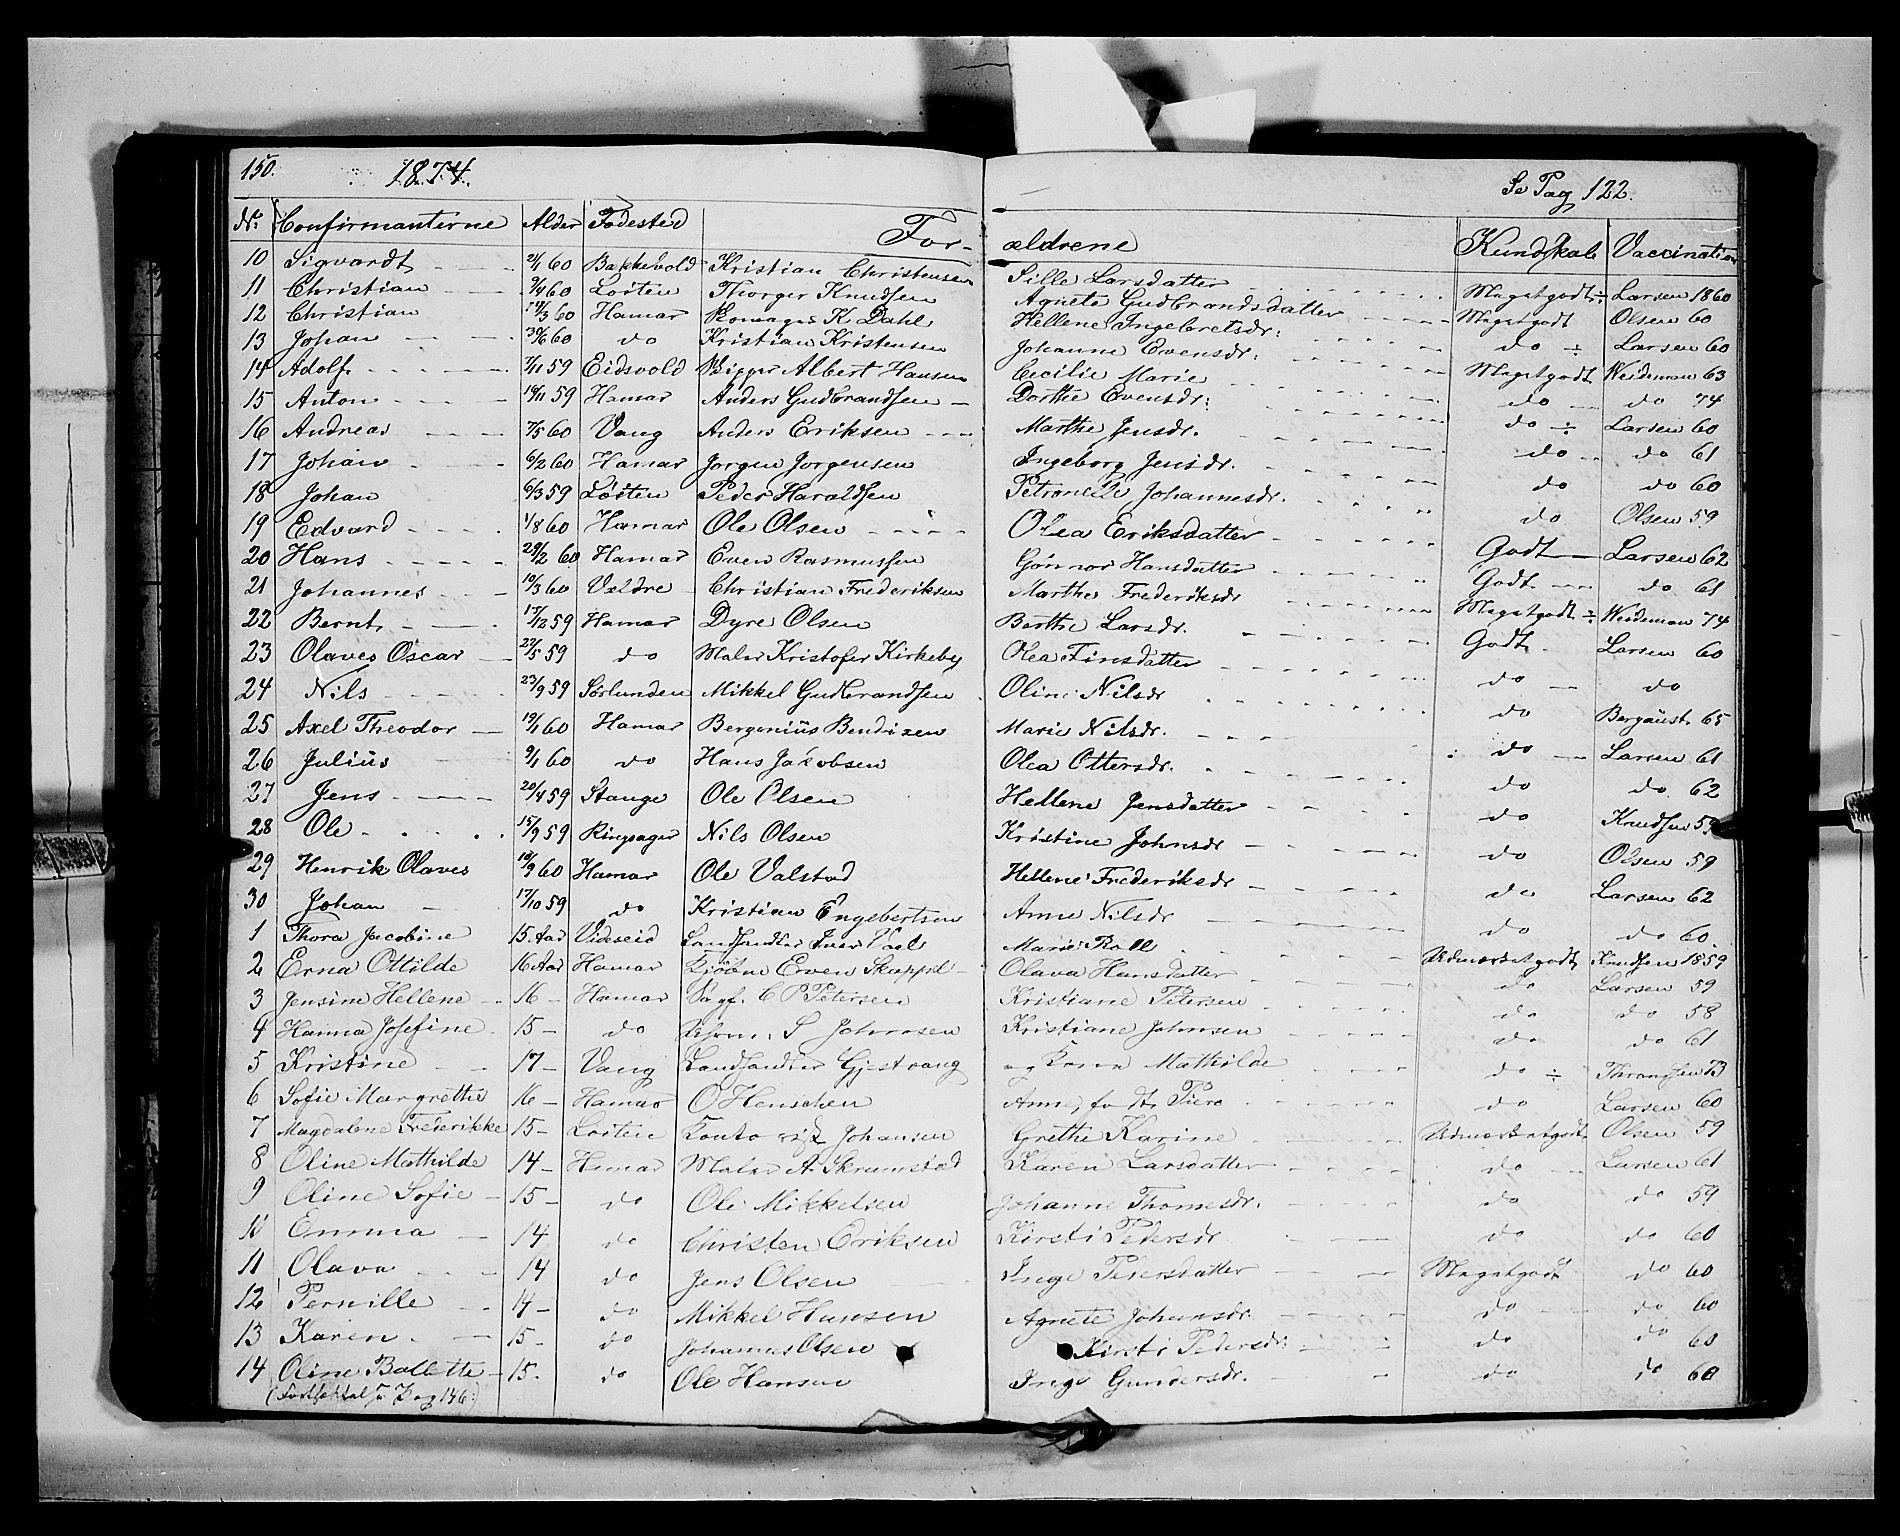 150. 1874. Se Pag 122.
Nr. Confirmanterne Alder Fødested For- ældrene Kundskab Vaccination
10 Sigvardt 2/1 60 Bakkevold Kristian Christensen Sille Larsdatter Megetgodt ÷ Larsen 1860
11 Christian 9/4 60 Løiten Thorger Knudsen Agnete Gudbrandsdatter Megetgodt Olsen 60
12 Christian 14/3 60 Hamar K Dahl Hellene Ingebretsdr. do ÷ Larsen 60
13 Johan 30/6 60 do Kristian Kristensen Johanne Evensdr. Megetgodt Weideman 63
14 Adolf 7/11 59 Eidsvold Albert Hansen Cecilie Marie do do 74
15 Anton 19/11 59 Hamar Anders Gudbrandsen Dorthe Evensdr. do ÷ Larsen 60
16 Andreas 7/5 60 Vang Anders Eriksen Marthe Jensdr. do do 61
17 Johan 6/2 60 Hamar Jørgen Jørgensen Ingeborg Jensdr. do do 60
18 Johan 6/3 59 Løiten Peder Haraldsen Petronelle Johannesdr. do Olsen 59
19 Edvard 1/8 60 Hamar Ole Olsen Olea Eriksdatter Godt Larsen 62
20 Hans 29/2 60 Hamar Even Rasmussen Gønnor Hansdatter Godt do 61
21 Johannes 10/3 60 Veldre Christian Frederiksen Marthe Frederiksdr Megetgodt ÷ Weideman 74
22 Bernt 17/12 59 Hamar Dyre Olsen Berthe Larsdr. Godt Larsen 60
23 Olaves Oscar 22/5 59 do Maler Kristofer Kirkeby Olea Finsdatter do do
24 Nils 23/9 59 Sørlunden Mikkel Gudbrandsen Oline Nilsdr do Bergaust 65
25 Axel Theodor 19/1 60 Hamar Bergenius Bendixen Marie Nilsdr. do Larsen 61
26 Julius 9/1 60 do Hans Jakobsen Olea Ottersdr. do do 62
27 Jens 20/4 59 Stange Ole Olsen Hellene Jensdatter do Knudsen 59
28 Ole 15/9 59 Ringsager Nils Olsen Kristine Johnsdr do Olsen 59
29 Henrik Olaves 10/9 60 Hamar Ole Valstad Hellene Frederiksdr do Larsen 62
30 Johan 17/10 59 do Kristian Engebertsen Anne Nilsdr do do 60
1 Thora Jacobine 15 Aar Videseid Landhandler Iver Marie Roll Udmærketgodt Knudsen 1859
2 Erna Ottilde 16 Aar Hamar Even Skappel Olava Hansdatter do Larsen 59
3 Jensine Hellene 16 Hamar Sagf. C P Petersen Kristiane Petersen do do 58
4 Hanna Josefine 15 do S Johnsen Kristiane Johnsen do do 61
5 Kristine 17 Vang Landhandler Gjestvang og Karen Mathilde do ÷ Thronsen 73
6 Sofie Margrethe 16 Hamar O Henschen Anne, f. do Larsen 60
7 Magdalene Frederikke 15 Løiten Johansen Grethe Karine Udmærketgodt Olsen 59
8 Oline Mathilde 14 Hamar Maler A. Skramstad Karen Larsdatter do Larsen 61
9 Oline Sofie 15 do Ole Mikkelsen Johanne Thomesdr. do do 59
10 Emma 14 do Christen Eriksen Kirsti Pedersdr do do 60
11 Olava 14 do Jens Olsen Inge Pedersdatter Megetgodt do 60
12 Pernille 14 do Mikkel Hansen Agnete Johansdr. do do 60
13 Karen 15 do Johannes Olsen Kirsti Pedersdr. do do 60
14 Oline Bollette 15. do Ole Hansen Inge Gundersdr. do do 60
Pag 146